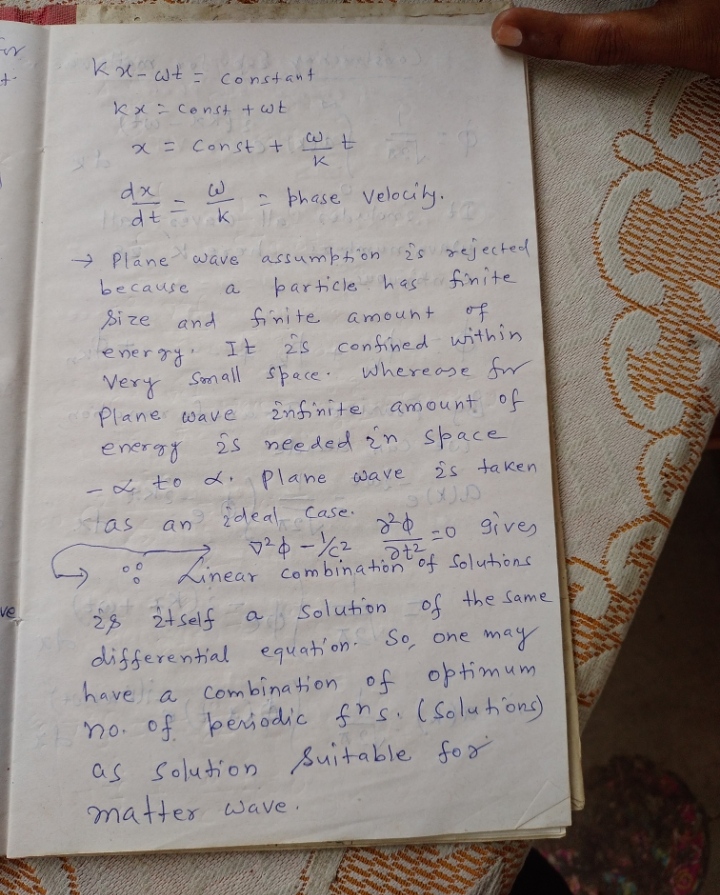 kx - ωt = constant
kx = const + ωt
x = const + ω/k t
dx/dt = ω/k = phase velocity.
→ Plane wave assumption is rejected
because a particle has finite
size and finite amount of
energy. It is confined within
very small space. Wherease for
Plane wave infinite amount of
energy is needed in space
- α to α. Plane wave is taken
as an ideal case.
∇²φ - 1/c² ∂²φ/∂t² = 0 gives
∵ Linear combination of solutions
is itself a solution of the same
differential equation. So, one may
have a combination of optimum
no. of periodic fns. (solutions)
as solution suitable for
matter wave.
ve